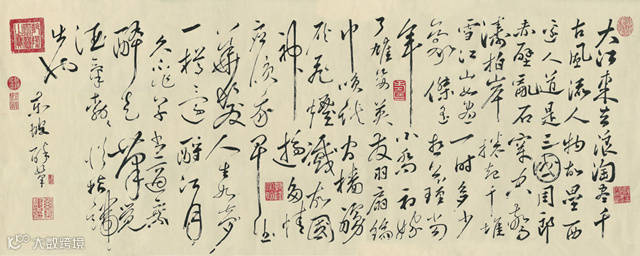 大江東去浪淘盡千
古風流人物故壘西
邊人道是三國周郎
赤壁亂石穿空驚
濤拍岸捲起千堆
雪江山如畫一時多少
豪傑遙想公瑾當
年小喬初嫁
了雄姿英發羽扇綸
巾談笑間檣艣
灰飛煙滅故國
神遊多情
應笑我早生
華髮人生如夢
一樽還酹江月
久不作草書適乘
醉走筆覺
酒氣勃勃從指端
出也
東坡醉筆
大数跨境